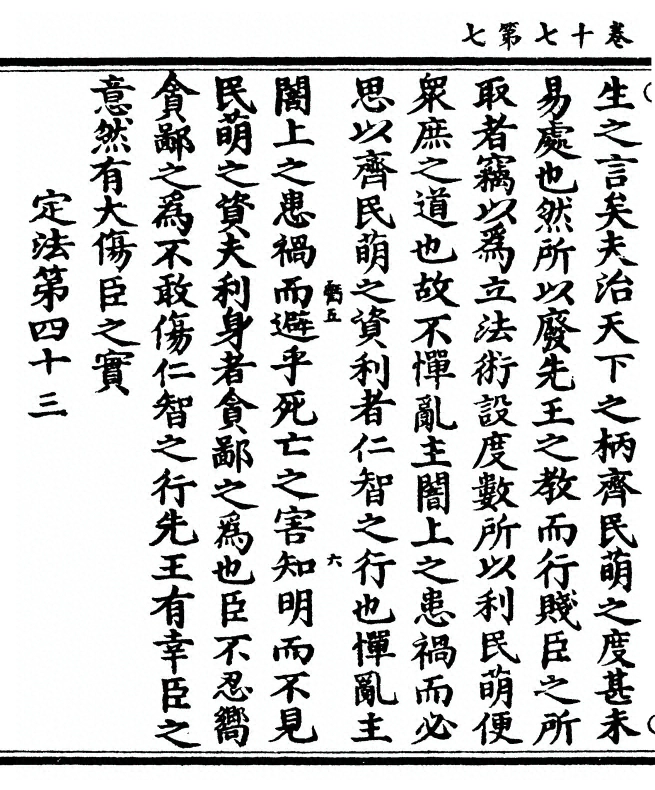 卷十七第七
生之言矣夫治天下之柄齊民萌之度甚未
易處也然所以廢先王之教而行賤臣之所
取者竊以爲立法術設度數所以利民萌便
衆庶之道也故不憚亂主闇上之患禍而必
思以齊民萌之資利者仁智之行也憚亂主
五
六
闇上之患禍而避乎死亡之害知明而不見
民萌之資夫利身者貪鄙之爲也臣不忍嚮
貪鄙之爲不敢傷仁智之行先王有幸臣之
意然有大傷臣之實
定法第四十三